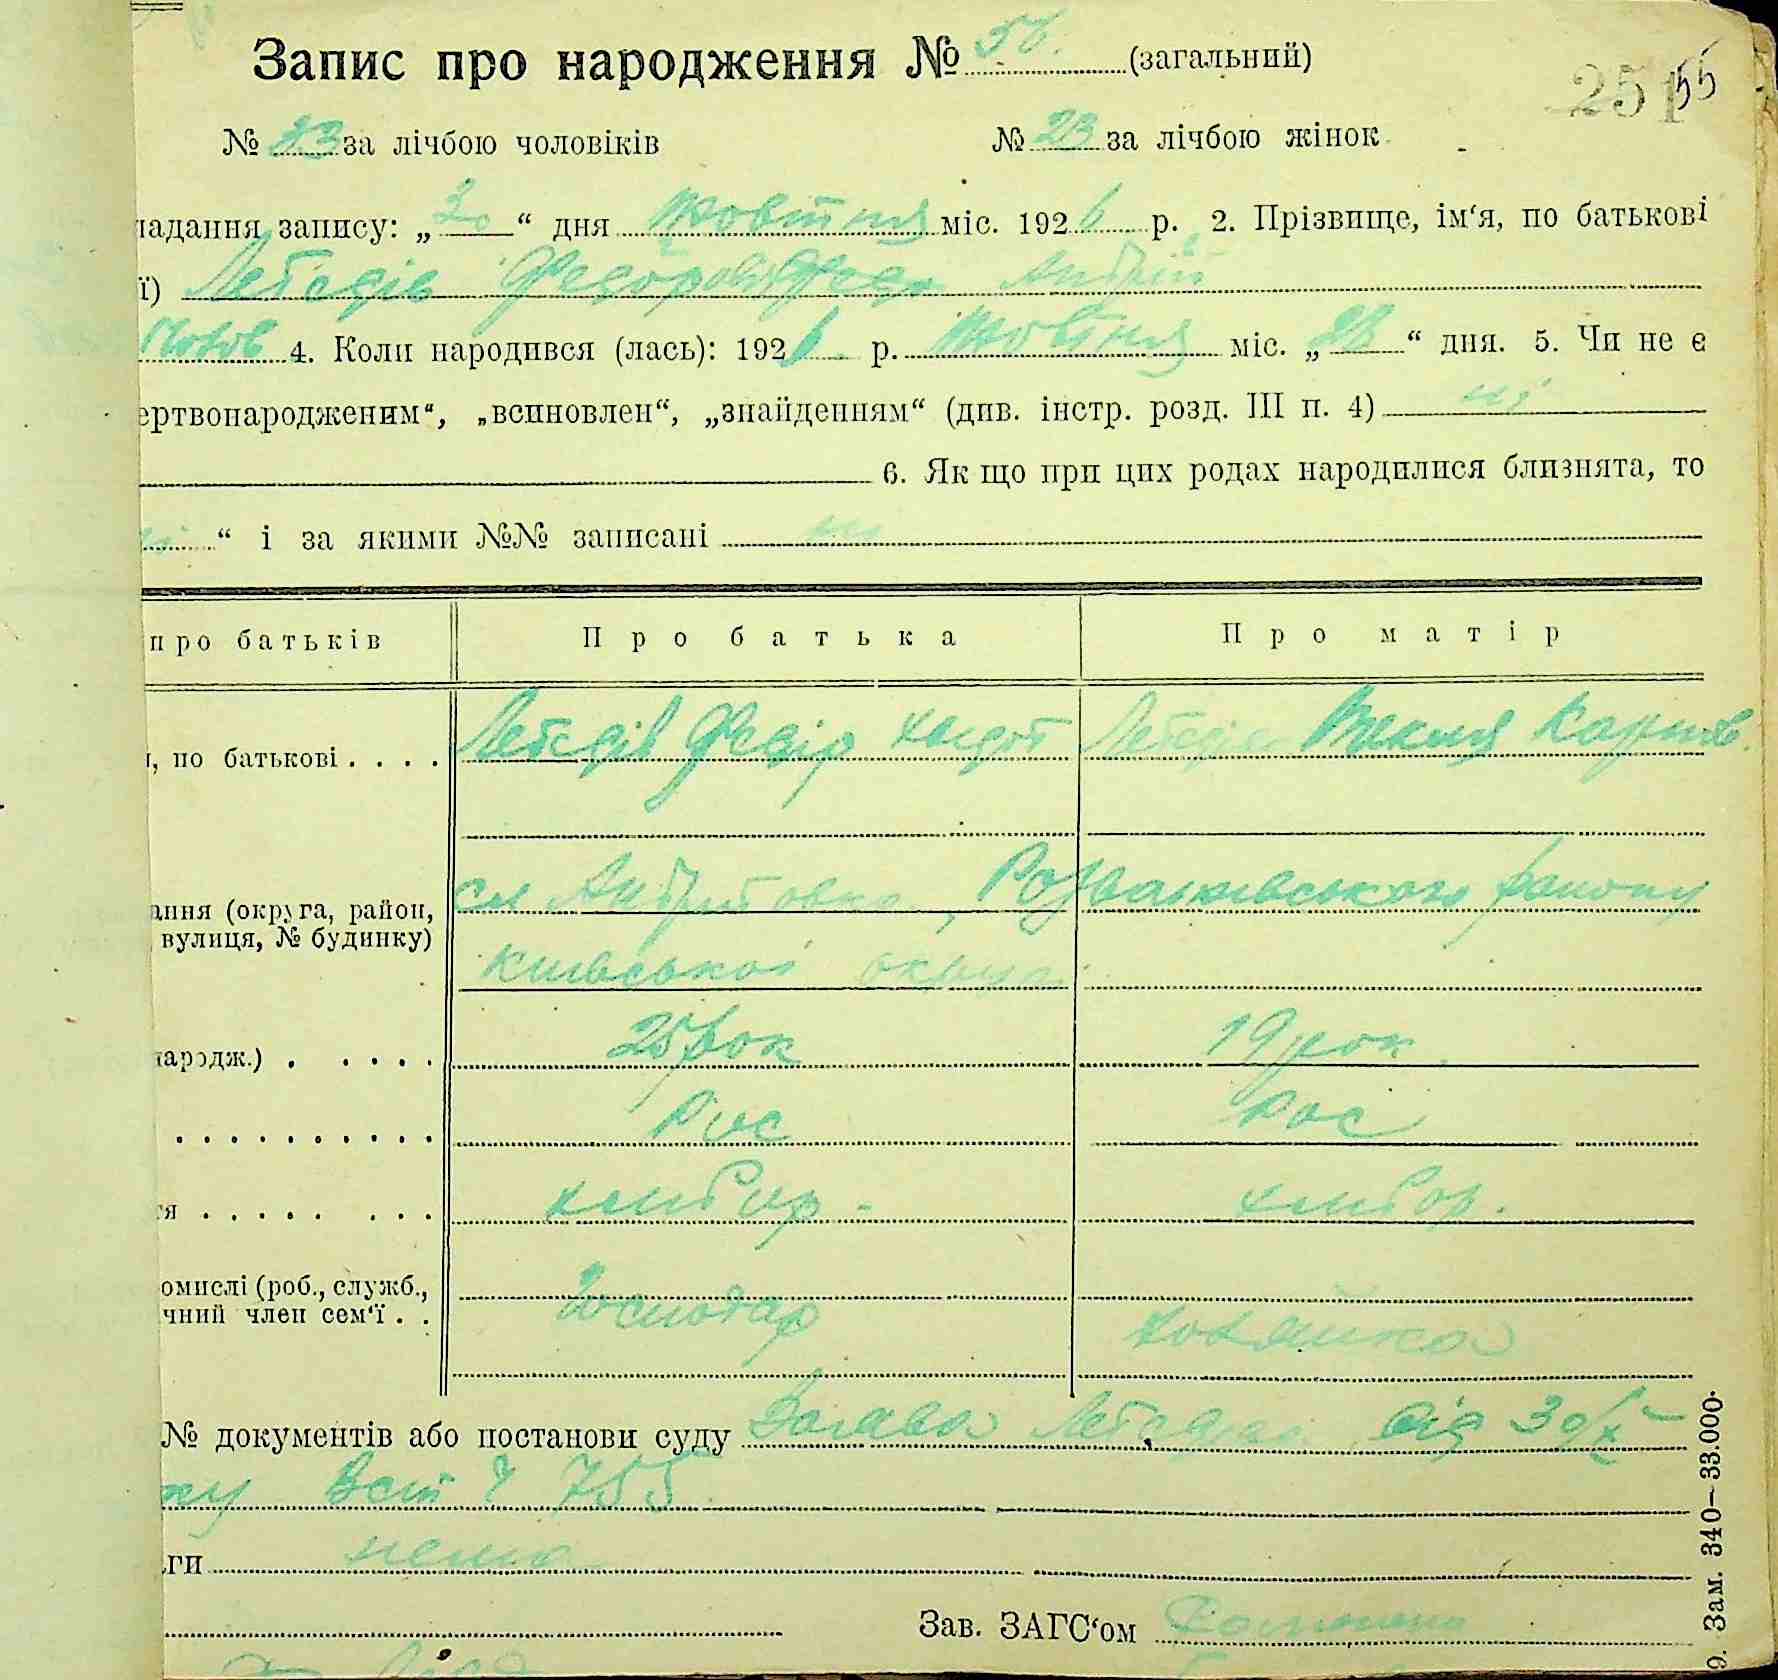 Запис про народження № 56. (загальний)
251 55
№ 33 за лічбою чоловіків № 23 за лічбою жінок
ладання запису: „30“ дня жовтня міс. 1926 р. 2. Прізвище, ім‘я, по батькові
ї) Лебедів Андрій
4. Коли народився (лась): 1926 р. жовтня міс. „28“ дня. 5. Чи не є
ертвонародженим“, „всиновлен“, „знайденням“ (див. інстр. розд. III п. 4) ні
6. Як що при цих родах народилися близнята, то
“ і за якими №№ записані ні
про батьків Про батька Про матір
, по батькові . . . . Лебедів Федір Лебедів Векля Карпов.
ання (округа, район, сл Розважівського району
вулиця, № будинку)
київської округи
народж.) . . . . . 25 рок 19 рок.
. . . . . . . . . . Рос Рос
тя . . . . . . . . хлібор - хлібор.
омислі (роб., служб.,
чний член сем‘ї . . Господар хозяйка
№ документів або постанови суду Заява від 30/X
ку 755
ги нема
Зав. ЗАГС‘ом
Зам. 340—33.000.